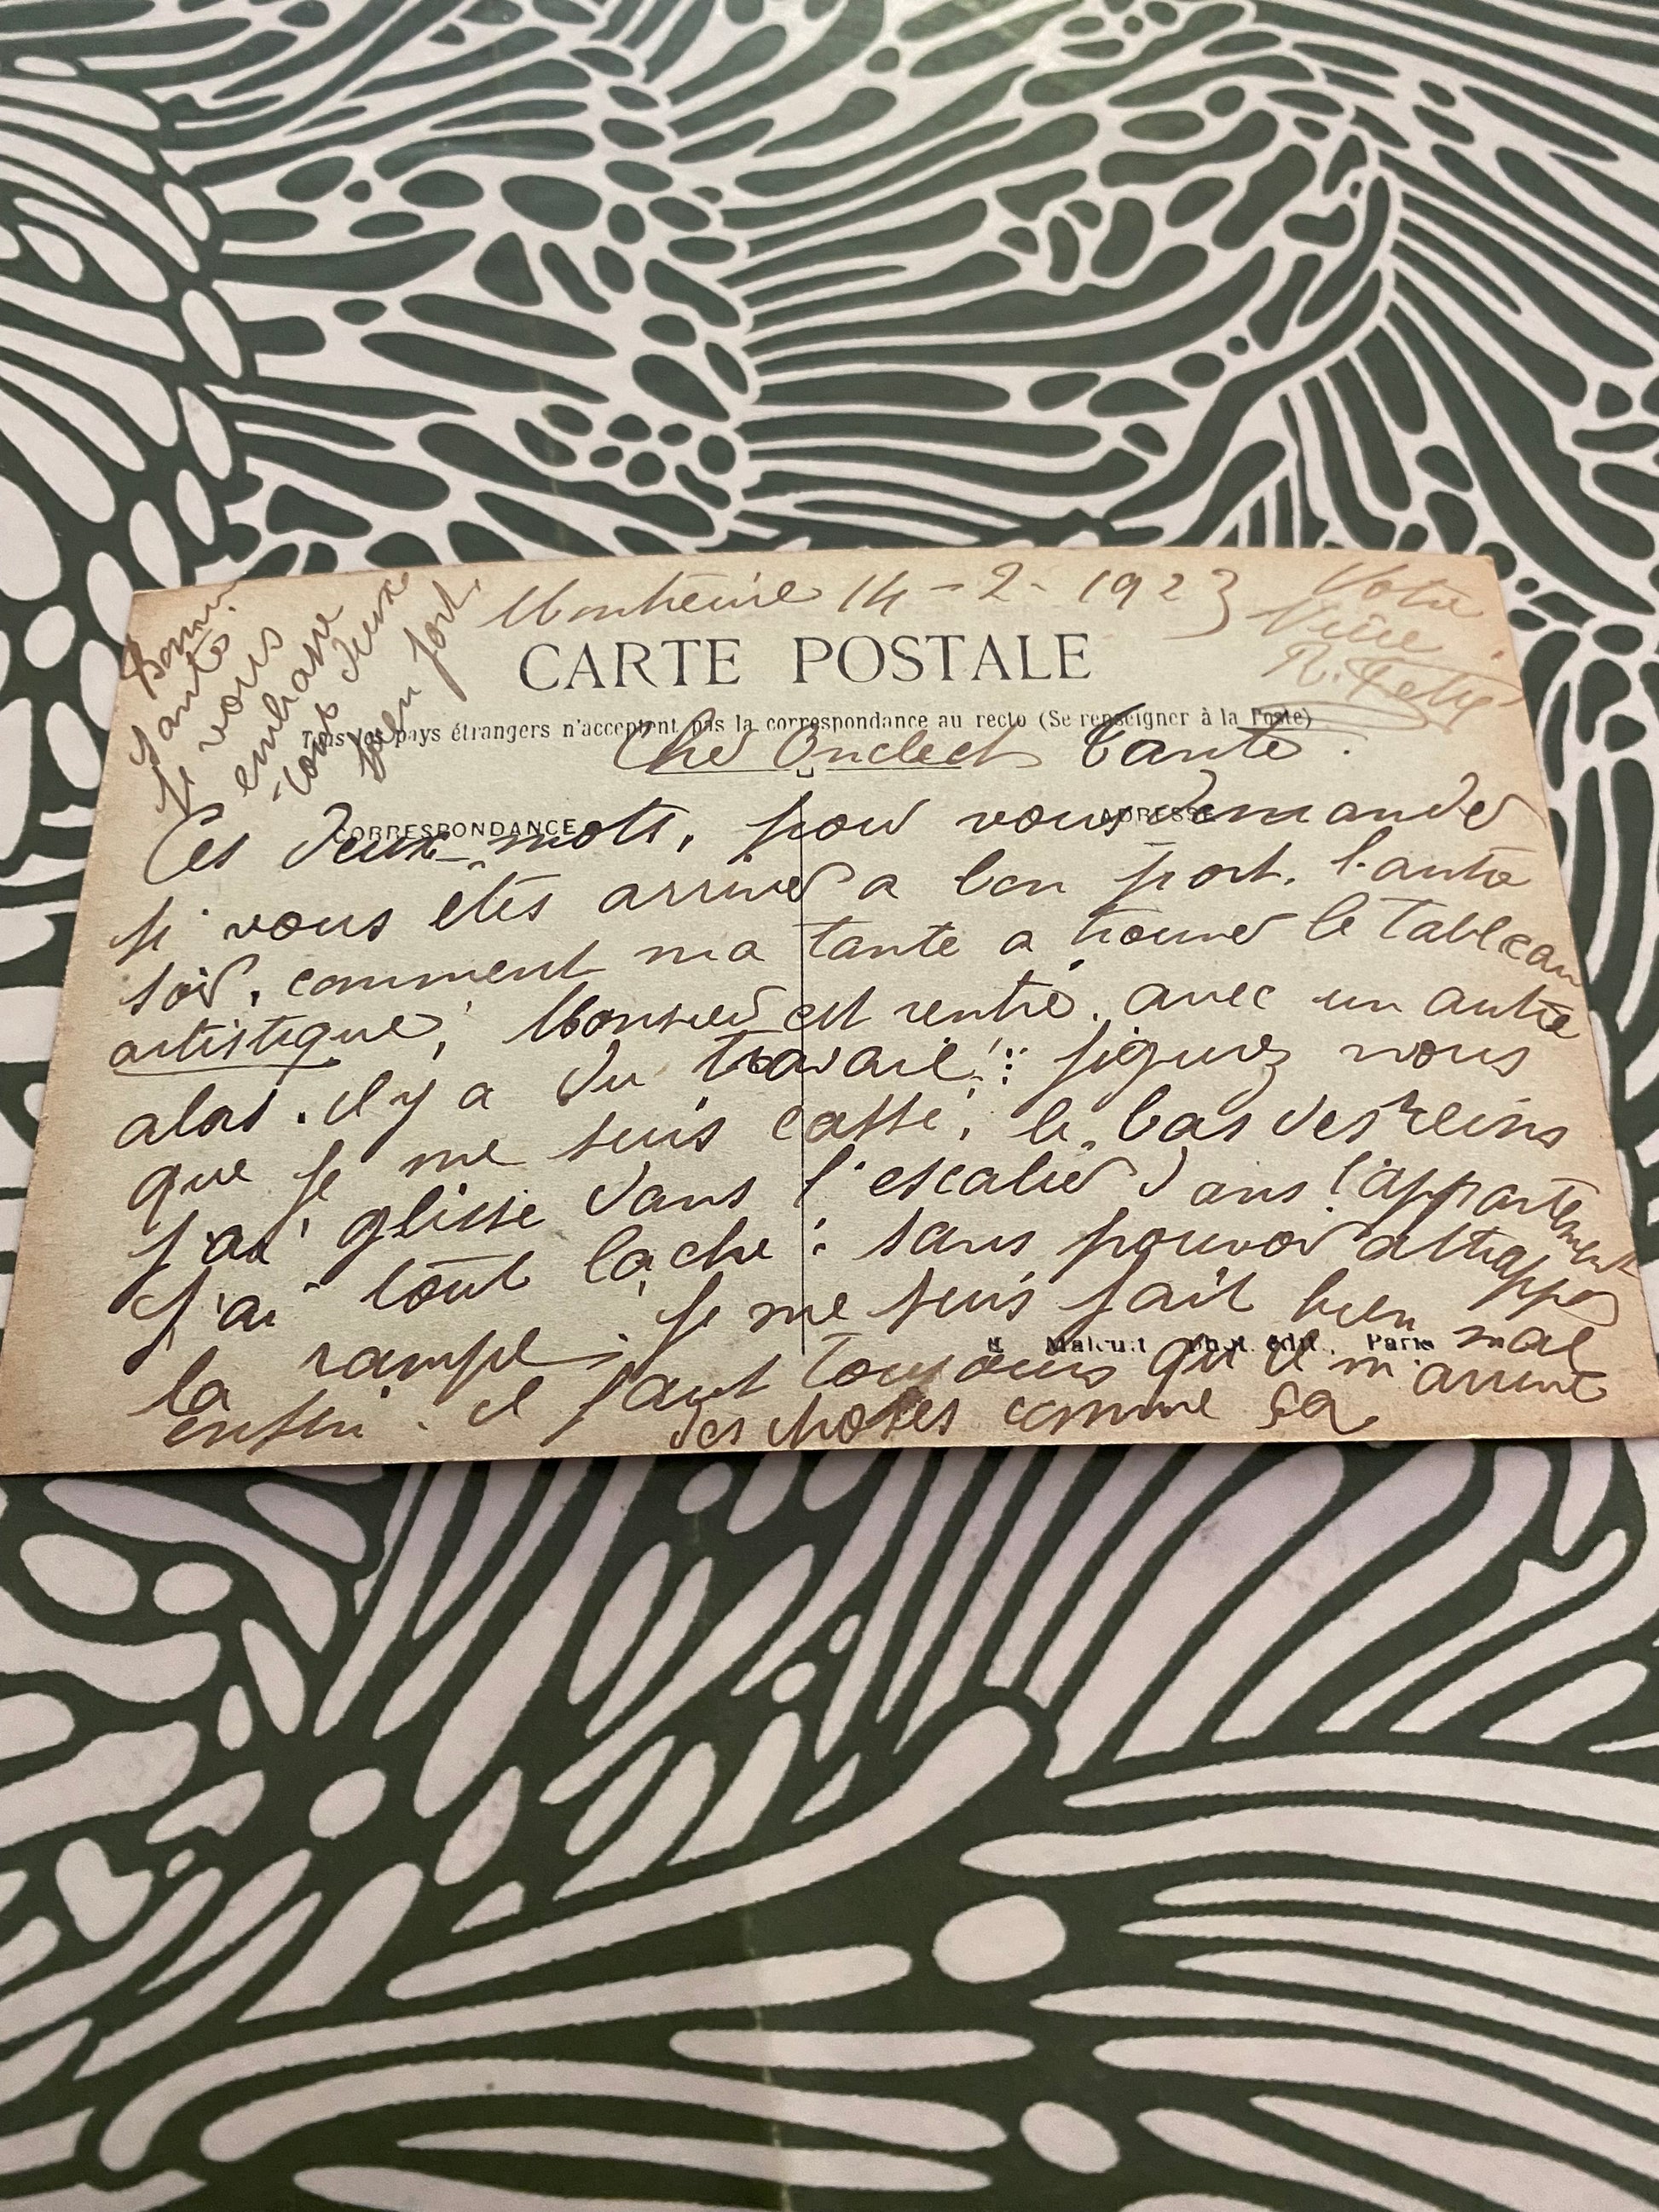 Montreuil 14-2-1923
Votre
Nièce
CARTE POSTALE
Tous les pays étrangers n'acceptent pas la correspondance au recto (Se renseigner à la Poste)
Cher Oncle et Tante.
CORRESPONDANCE
ADRESSE
Ces deux mots, pour vous demander
si vous êtes arriver a bon port. l'autre
soir, comment ma tante a trouver le tableau
artistique, Monsieur est rentré. avec un autre
alas. il y a du travail!: figurez vous
que je me suis cassé, le bas des reins
j'ai glissé dans l'escalier dans l'appartement
j'ai tout laché: sans pouvoir attrapper
la rampe. je me suis fait bien mal
enfin. il faut toujours qu'il m'arrive
des choses comme ça
Malcuit phot. édit. Paris
Bonne
santé
je vous
embrasse
tous deux
bien fort.